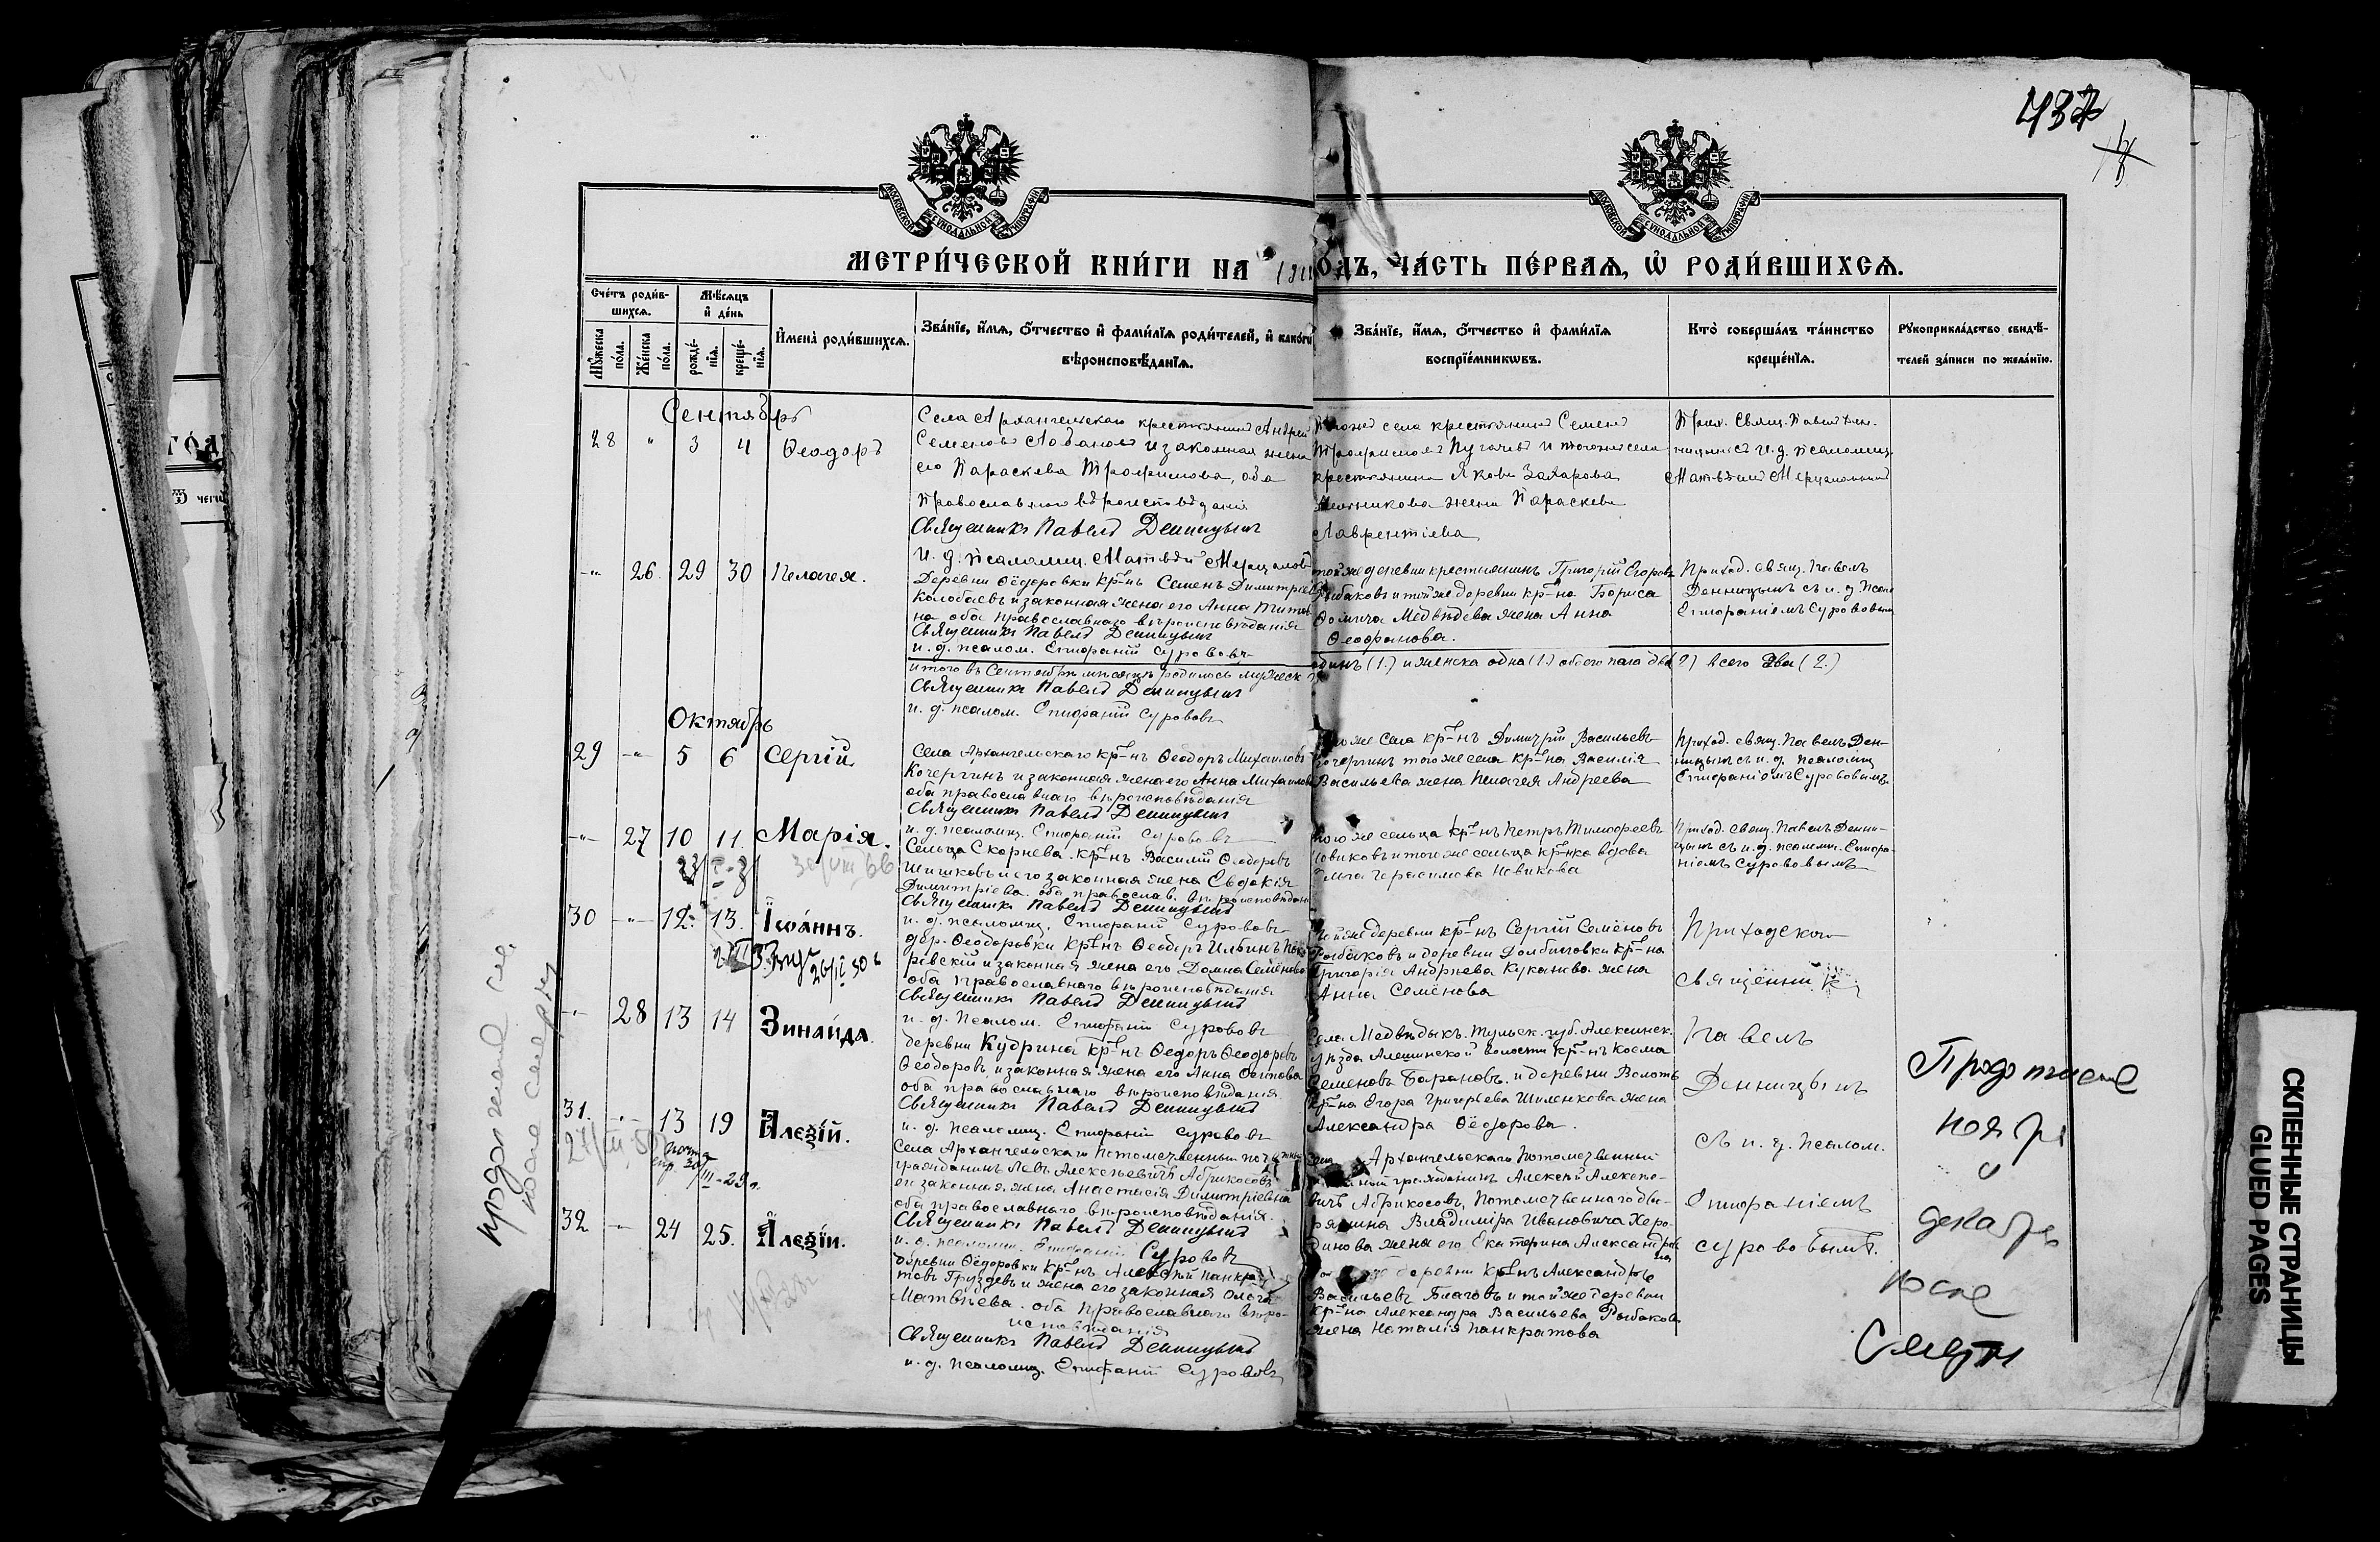 437
МОСКОВСКОЙ СѴНОДАЛЬНОЙ ТИПОГРАФІИ
МОСКОВСКОЙ СѴНОДАЛЬНОЙ ТИПОГРАФІИ
МЕТРИ́ЧЕСКОЙ КНИ́ГИ НА 191
ОДЪ, ЧА́СТЬ ПЕ́РВАѦ, Ѡ РОДИ́ВШИХСѦ.
Сче́тъ роди́вшихсѧ.
Мꙋ́жеска по́ла.
Же́нска по́ла.
Мѣ́сѧцъ и҆ де́нь
рожде́нїѧ.
креще́нїѧ.
И҆мена̀ роди́вшихсѧ.
Зва́нїе, и҆́мѧ, ѻ҆́тчество и҆ фами́лїѧ роди́телей, и҆ како́гѡ
вѣроисповѣ́данїѧ.
Зва́нїе, и҆́мѧ, ѻ҆́тчество и҆ фами́лїѧ
воспрїе́мникѡвъ.
Кто̀ соверша́лъ та́инство
креще́нїѧ.
Рꙋкоприкла́дство свидѣ́-
телей за́писи по жела́нїю.
Сентябрь
28 " 3 4 Ѳеодоръ
Села Архангельскаго крестьянинъ Андрей
Семеновъ Лобановъ и законная жена
его Параскева Трофимова, оба
Православнаго вѣроисповѣданія
Священникъ Павелъ Денницынъ
И. д. псаломщ. Матвѣй
Того же села крестьянинъ Семенъ
Трофимовъ Пугачевъ и того же села
крестьянина Якова Захарова
жена Параскева
Лаврентіева
Прих. Свящ. Павелъ Ден-
ницынъ съ и. д. псаломщ.
Матвѣемъ
-"- 26. 29 30 Пелагея.
Деревни Ѳёдоровки кр-нъ Семенъ Димитріевъ
Колобаевъ и законная жена его Анна Титов-
на оба православнаго вѣроисповѣданія
Священникъ Павелъ Денницынъ
и. д. псалом. Епифаній Сурововъ
той же деревни крестьянинъ Григорій Егоровъ
Рыбаковъ и той же деревни кр-на Бориса
Ѳомича Медвѣдева жена Анна
Ѳеофанова.
Приход. свящ. Павелъ
Денницынъ съ и. д. псал.
Епифаніемъ Сурововымъ
итого въ Сентябрѣ мѣсяцѣ родилось мужеск.
одинъ (1.) и женска одна (1.) обоего пола два (2) всего два (2.)
Священникъ Павелъ Денницынъ
и. д. псалом. Епифаній Сурововъ
Октябрь
29 -"- 5 6 Сергій
Села Архангельскаго кр-нъ Ѳеодоръ Михаиловъ
Кочергинъ и законная жена его Анна Михаилова
оба православнаго вѣроисповѣданія
Священникъ Павелъ Денницынъ
и. д. псаломщ. Епифаній Сурововъ
того же села кр-нъ Димитрій Васильевъ
Кочергинъ того же села кр-на Василія
Васильева жена Пелагея Андреева
Приход. свящ. Павелъ Ден-
ницынъ съ и. д. псаломщ.
Епифаніемъ Сурововымъ.
-"- 27 10 11. Марія.
Сельца Скорнева кр-нъ Василій Ѳеодоровъ
Шишковъ и его законная жена Евдокія
Димитріева. оба православ. вѣроисповѣдан.
Священникъ Павелъ Денницынъ
и. д. псаломщ. Епифаній Сурововъ
того же сельца кр-нъ Петръ Тимофеевъ
Новиковъ и того же сельца кр-нка вдова
Герасимова Новикова
Приход. свящ. Павелъ Денни-
цынъ съ и. д. псаломщ. Епифа-
ніемъ Сурововымъ
30 -"- 12. 13. Іѡа́ннъ.
дер. Ѳеодоровки кр-нъ Ѳеодоръ Ильинъ
ровскій и законная жена его Домна Семёнова
оба православнаго вѣроисповѣданія
Священникъ Павелъ Денницынъ
и. д. псалом. Епифаній Сурововъ
той же деревни кр-нъ Сергій Семёновъ
Рыбаковъ и деревни Долбиловки кр-на
Григорія Андреева Куканова жена
Анна Семёнова
Приходскій
священникъ
-"- 28 13 14 Зинаи́да.
деревни Кудрина кр-нъ Ѳедоръ Ѳеодоровъ
Ѳеодоровъ, и законная жена его Анна Осипова
оба православнаго вѣроисповѣданія
Священникъ Павелъ Денницынъ
и. д. псаломщ. Епифаній Сурововъ
Села Медвѣдыкъ. Тульск. губ. Алексинск.
уѣзда Алешинской волости кр-нъ Косма
Семеновъ Барановъ. и деревни
кр-на Егора Григорьева Шиленкова жена
Александра Ѳёдорова.
Павелъ
Денницынъ
31. -"- 13 19 Алеѯі́й.
Села Архангельскаго потомственный почетный
гражданинъ Левъ Алексѣевичъ Абрикосовъ
и законная жена Анастасія Димитріевна
оба православнаго вѣроисповѣданія.
Священникъ Павелъ Денницынъ
и. д. псаломщ. Епифаній Сурововъ
села Архангельскаго Потомственный
гражданинъ Алексѣй Алексѣе-
вичъ Абрикосовъ, Потомственнаго дво-
рянина Владиміра Ивановича Херо-
динова жена его Екатерина Александров
на
съ и. д. псалом.
Епифаніемъ
Сурововымъ.
32 -"- 24 25. Алеѯі́й.
деревни Ѳёдоровки кр-нъ Алексѣй Панкра-
товъ Груздевъ и жена его законная Ольга
Матвѣева. оба православнаго вѣро-
исповѣданія
Священникъ Павелъ Денницынъ
и. д. псаломщ. Епифаній Сурововъ
деревни кр-нъ Александръ
Васильевъ Благовъ и той же деревни
кр-на Александра Васильева Рыбакова
жена Наталія Панкратова
продолжение см.
после смерти
Продолжение
ноябрь
и
декабрь
после
смерти
СКЛЕЕННЫЕ СТРАНИЦЫ
GLUED PAGES